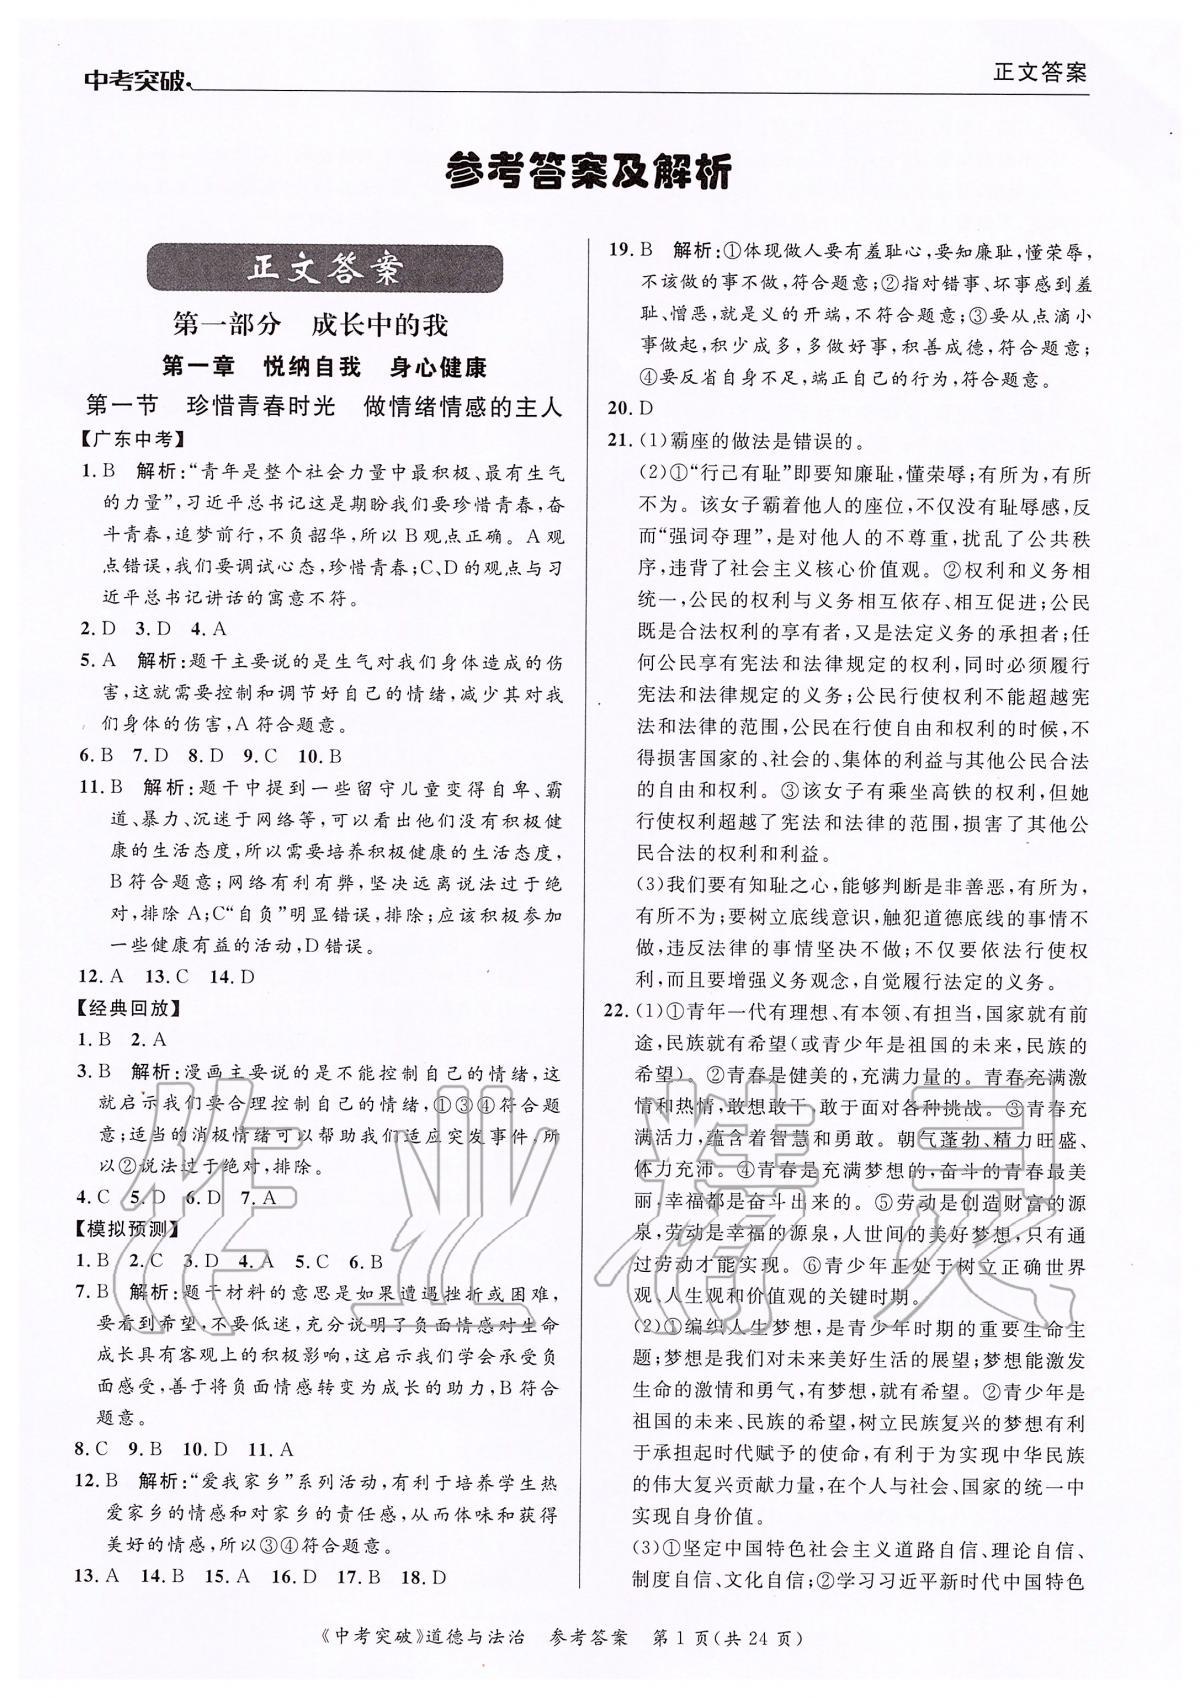 中考突破
正文答案
参考答案及解析
正文答案
第一部分　成长中的我
第一章　悦纳自我　身心健康
第一节　珍惜青春时光　做情绪情感的主人
【广东中考】
1. B　解析:“青年是整个社会力量中最积极、最有生气
的力量”,习近平总书记这是期盼我们要珍惜青春,奋
斗青春,追梦前行,不负韶华,所以 B观点正确。A 观
点错误,我们要调试心态,珍惜青春;C、D的观点与习
近平总书记讲话的寓意不符。
2. D　3. D　4. A
5. A　解析:题干主要说的是生气对我们身体造成的伤
害,这就需要控制和调节好自己的情绪,减少其对我
们身体的伤害,A 符合题意。
6. B　7. D　8. D　9. C　10. B
11. B　解析:题干中提到一些留守儿童变得自卑、霸
道、暴力、沉迷于网络等,可以看出他们没有积极健
康的生活态度,所以需要培养积极健康的生活态度,
B符合题意;网络有利有弊,坚决远离说法过于绝
对,排除 A;C“自负”明显错误,排除;应该积极参加
一些健康有益的活动,D 错误。
12. A　13. C　14. D
【经典回放】
1. B　2. A
3. B　解析:漫画主要说的是不能控制自己的情绪,这
就启示我们要合理控制自己的情绪,①③④符合题
意;适当的消极情绪可以帮助我们适应突发事件,所
以②说法过于绝对,排除。
4. C　5. D　6. D　7. A
【模拟预测】
1. B　2. C　3. D　4. A　5. C　6. B
7. B　解析:题干材料的意思是如果遭遇挫折或困难,
要看到希望,不要低迷,充分说明了负面情感对生命
成长具有客观上的积极影响,这启示我们学会承受负
面感受,善于将负面情感转变为成长的助力,B 符合
题意。
8. C　9. B　10. D　11. A
12. B　解析:“爱我家乡”系列活动,有利于培养学生热
爱家乡的情感和对家乡的责任感,从而体味和获得
美好的情感,所以③④符合题意。
13. A　14. B　15. A　16. D　17. B　18. D
19. B　解析:①体现做人要有羞耻心,要知廉耻,懂荣辱,
不该做的事不做,符合题意;②指对错事、坏事感到羞
耻、憎恶,就是义的开端,不符合题意;③要从点滴小
事做起,积少成多,多做好事,积善成德,符合题意;
④要反省自身不足,端正自己的行为,符合题意。
20. D
21. (1)霸座的做法是错误的。
(2)①“行己有耻”即要知廉耻,懂荣辱;有所为,有所
不为。该女子霸着他人的座位,不仅没有耻辱感,反
而“强词夺理”,是对他人的不尊重,扰乱了公共秩
序,违背了社会主义核心价值观。②权利和义务相
统一,公民的权利与义务相互依存、相互促进;公民
既是合法权利的享有者,又是法定义务的承担者;任
何公民享有宪法和法律规定的权利,同时必须履行
宪法和法律规定的义务;公民行使权利不能超越宪
法和法律的范围,公民在行使自由和权利的时候,不
得损害国家的、社会的、集体的利益与其他公民合法
的自由和权利。③该女子有乘坐高铁的权利,但她
行使权利超越了宪法和法律的范围,损害了其他公
民合法的权利和利益。
(3)我们要有知耻之心,能够判断是非善恶,有所为,
有所不为;要树立底线意识,触犯道德底线的事情不
做,违反法律的事情坚决不做;不仅要依法行使权
利,而且要增强义务观念,自觉履行法定的义务。
22. (1)①青年一代有理想、有本领、有担当,国家就有前
途,民族就有希望(或青少年是祖国的未来,民族的
希望)。②青春是健美的,充满力量的。青春充满激
情和热情,敢想敢干,敢于面对各种挑战。③青春充
满活力,蕴含着智慧和勇敢。朝气蓬勃、精力旺盛、
体力充沛。④青春是充满梦想的,奋斗的青春最美
丽,幸福都是奋斗出来的。⑤劳动是创造财富的源
泉,劳动是幸福的源泉,人世间的美好梦想,只有通
过劳动才能实现。⑥青少年正处于树立正确世界
观、人生观和价值观的关键时期。
(2)①编织人生梦想,是青少年时期的重要生命主
题;梦想是我们对未来美好生活的展望;梦想能激发
生命的激情和勇气,有梦想,就有希望。②青少年是
祖国的未来、民族的希望,树立民族复兴的梦想有利
于承担起时代赋予的使命,有利于为实现中华民族
的伟大复兴贡献力量,在个人与社会、国家的统一中
实现自身价值。
(3)①坚定中国特色社会主义道路自信、理论自信、
制度自信、文化自信;②学习习近平新时代中国特色
《中考突破》道德与法治　参考答案　第 1 页(共 24 页)
作业精灵